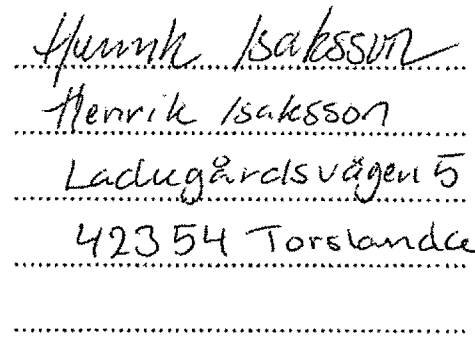 Henrik Isaksson
Henrik Isaksson
Ladugårdsvägen 5
42354 Torslanda